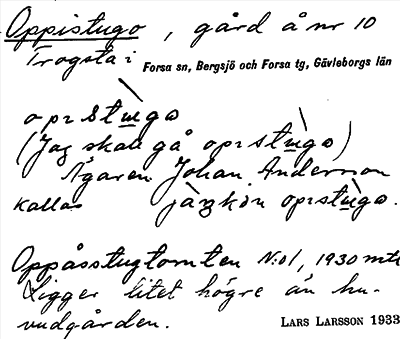 Oppistugo, gård å nr 10
Trogsta i Forsa sn, Bergsjö och Forsa tg, Gävleborgs län
opɪstùgo
(Jag skall gå opɪstùgo)
Ägaren Johan Anderson
kallas opɪstùgo.
Oppåsstugtomten N:o1, 1930 mtl
Ligger litet högre än hu-
vudgården.
LARS LARSSON 1933